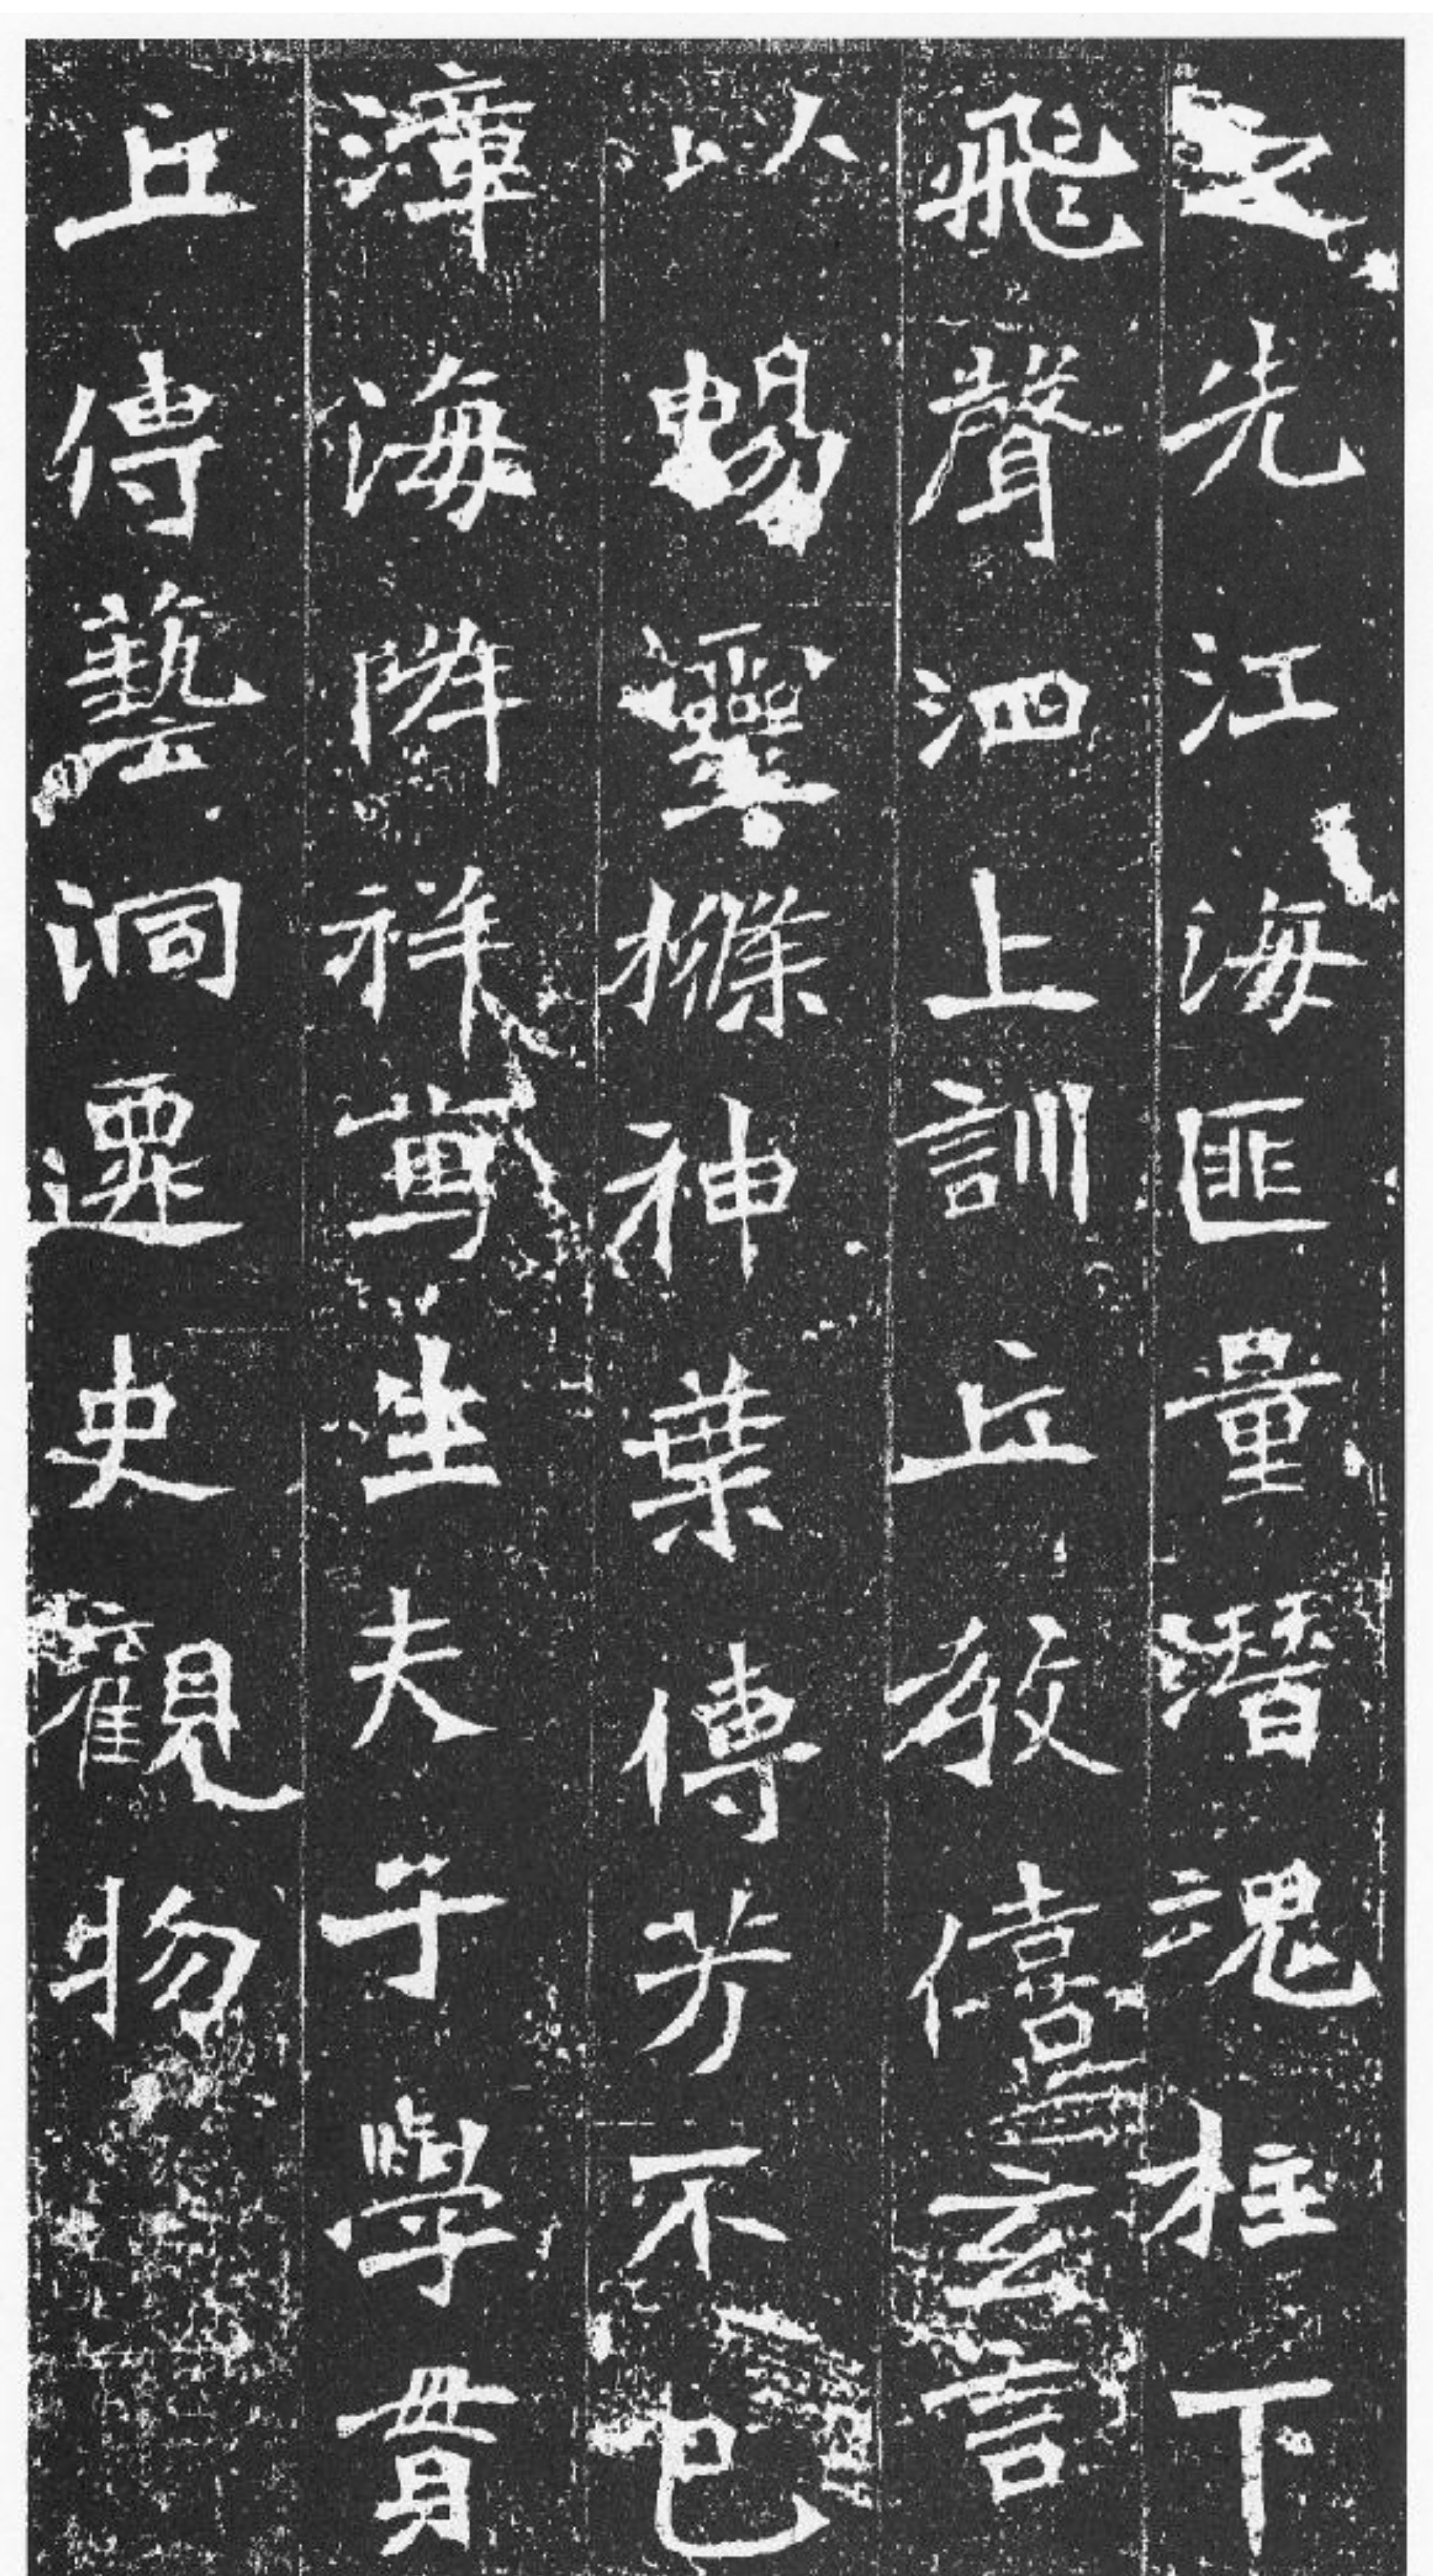 之先江海匪量潛魂柱下
飛聲泗上訓丘教僖玄言
以暢靈樤神葉傳芳不已
漳海降祥篤生夫子學貫
丘傳藝洞遷史觀物